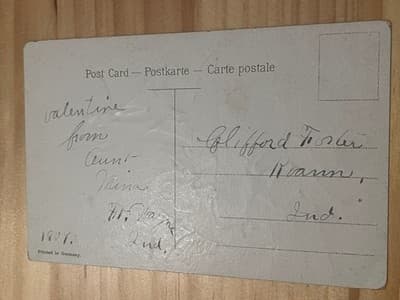 Post Card — Postkarte — Carte postale
valentine
from
Aunt
Mina
Ft. Wayne
Ind.
1907.
Clifford Foster
Roann,
Ind.
Printed in Germany.